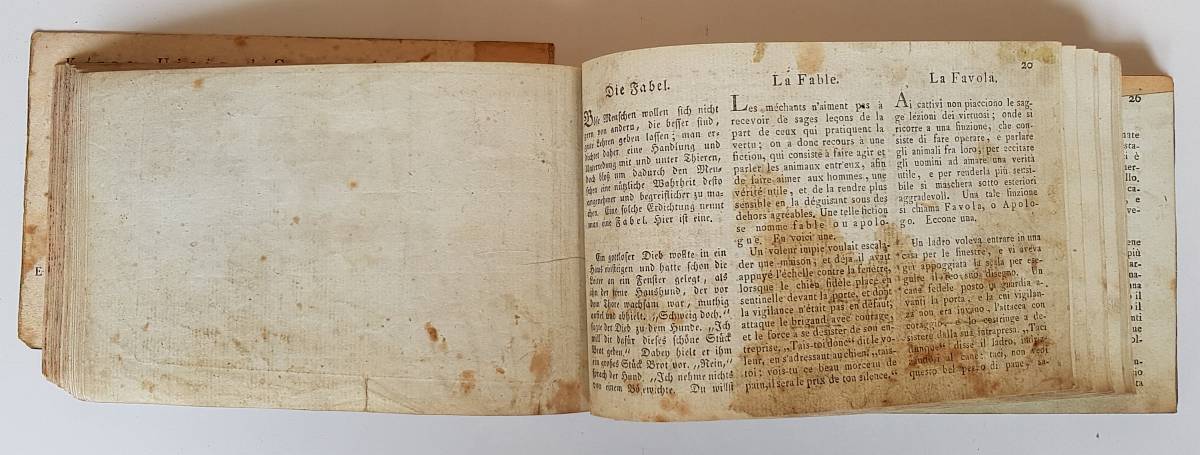 20
Die Fabel.
Böse Menschen wollen sich nicht
gern von andern, die besser sind,
gute Lehren geben lassen; man er-
dichtet daher eine Handlung und
Unterredung mit und unter Thieren,
doch bloß um dadurch den Men-
schen eine nützliche Wahrheit desto
angenehmer und begreiflicher zu ma-
chen. Eine solche Erdichtung nennt
man eine Fabel. Hier ist eine.
Ein gottloser Dieb wollte in ein
Haus einsteigen und hatte schon die
Leiter an ein Fenster gelegt, als
ihn der treue Haushund, der vor
dem Thore wachsam war, muthig
anfiel und abhielt. „Schweig doch,"
sagte der Dieb zu dem Hunde. „Ich
will dir dafür dieses schöne Stück
Brot geben." Dabey hielt er ihm
ein großes Stück Brot vor. „Nein,"
sprach der Hund, „Ich nehme nichts
von einem Bösewichte. Du willst
La Fable.
Les méchants n'aiment pas à
recevoir de sages leçons de la
part de ceux qui pratiquent la
vertu; on a donc recours à une
fiction, qui consiste à faire agir et
parler les animaux entr'eux, afin
de faire aimer aux hommes, une
vérité utile, et de la rendre plus
sensible en la déguisant sous des
dehors agréables. Une telle fiction
se nomme fable ou apolo-
gue. En voici une.
Un voleur impie voulait escala-
der une maison, et déja il avait
appuyé l'échelle contre la fenêtre,
lorsque le chien fidèle placé en
sentinelle devant la porte, et dont
la vigilance n'était pas en défaut,
attaque le brigand avec courage,
et le force à se désister de son en-
treprise. „Tais-toi donc" dit le vo-
leur, en s'adressant au chien, „tais-
toi; vois-tu ce beau morceau de
pain, il sera le prix de ton silence."
La Favola.
Ai cattivi non piacciono le sag-
ge lezioni dei virtuosi; onde si
ricorre a una finzione, che con-
siste di fare operare, e parlare
gli animali fra loro, per eccitare
gli uomini ad amare una verità
utile, e per renderla più sensi-
bile si maschera sotto esteriori
aggradevoli. Una tale finzione
si chiama Favola, o Apolo-
go. Eccone una.
Un ladro voleva entrare in una
casa per le finestre, e vi aveva
già appoggiata la scala per ese-
guire il reo suo disegno. Un
cane fedele posto in guardia a-
vanti la porta, e la cui vigilan-
za non era invano, l'attacca con
coraggio, e lo costringe a de-
sistere dalla sua intrapresa. „Taci
dunque" disse il ladro,
al cane: taci, non vedi
questo bel pezzo di pane, sa-
26